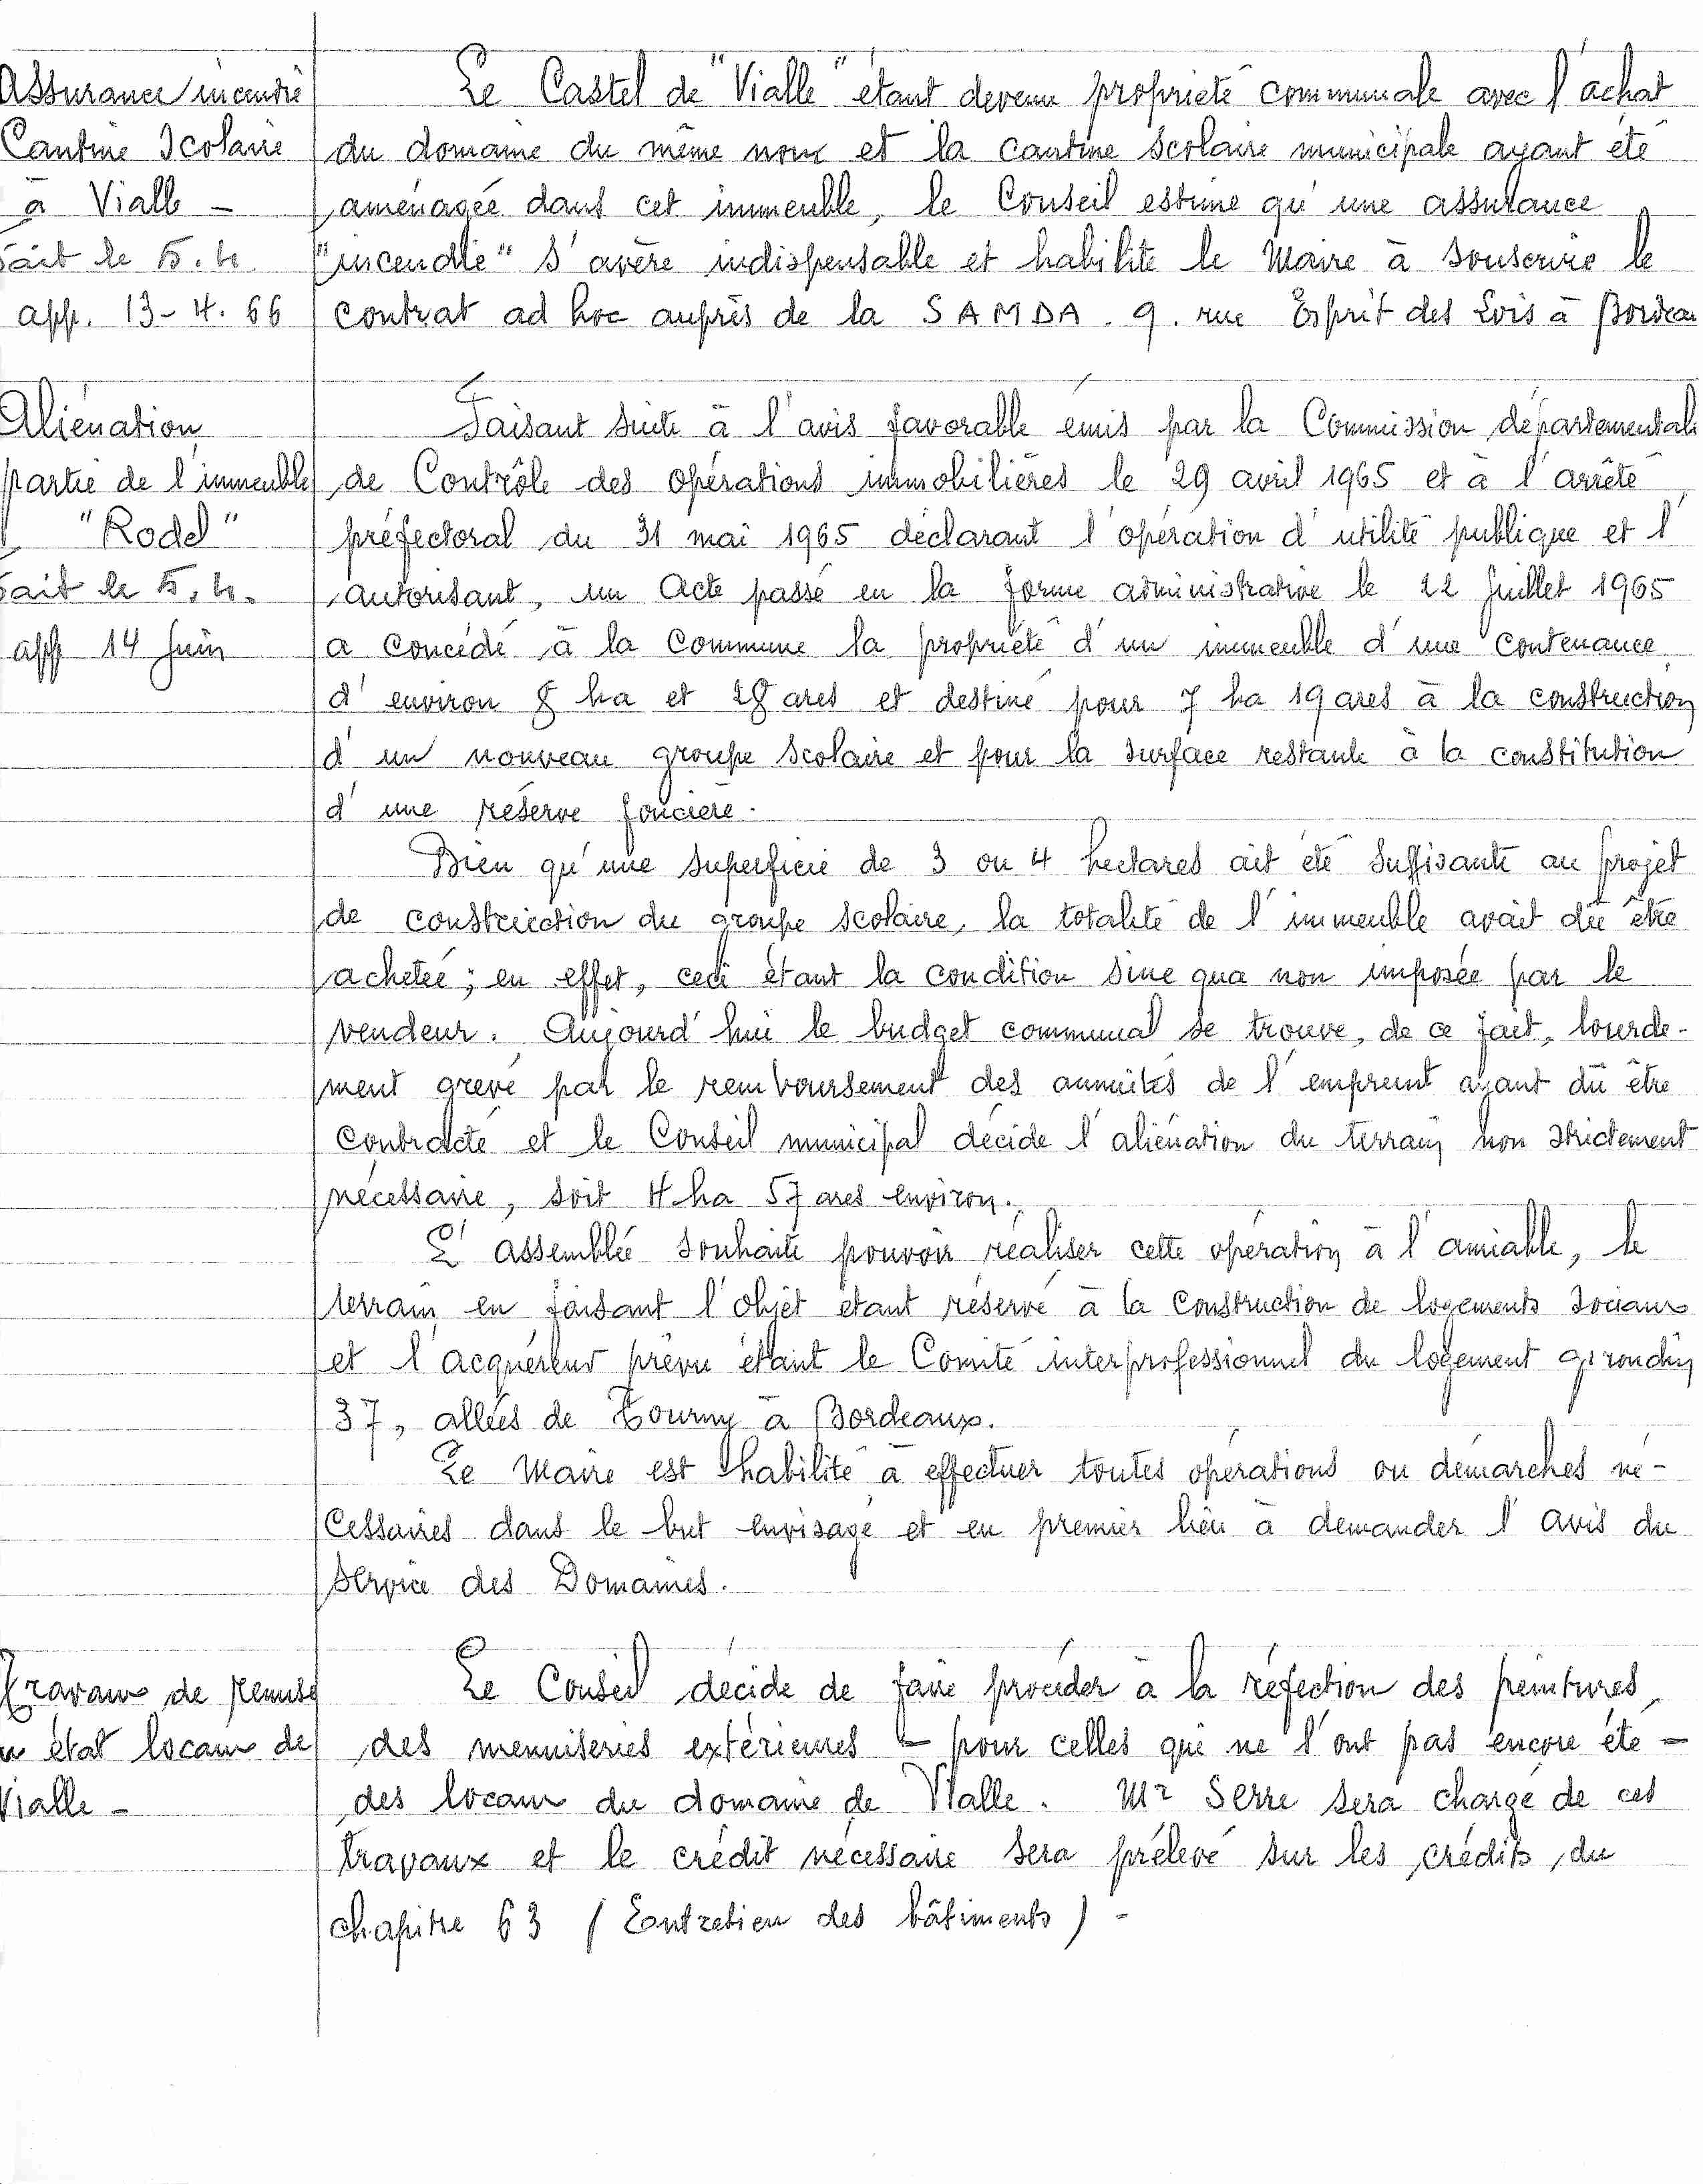 Assurance incendie
Cantine Scolaire
à Vialle -
fait le 5.4.
app. 13-4.66
Le Castel de "Vialle" étant devenu propriété communale avec l'achat
du domaine du même nom et la cantine scolaire municipale ayant été
aménagée dans cet immeuble, le Conseil estime qu'une assurance
"incendie" s'avère indispensable et habilite le Maire à souscrire le
contrat ad hoc auprès de la SAMDA. 9. rue Esprit des Lois à Bordeau
Aliénation
partie de l'immeuble
"Rodel"
fait le 5.4.
app 14 Juin
Faisant suite à l'avis favorable émis par la Commission départementale
de Contrôle des opérations immobilières le 29 avril 1965 et à l'arrêté
préfectoral du 31 mai 1965 déclarant l'opération d'utilité publique et l'
autorisant, un Acte passé en la forme administrative le 22 Juillet 1965
a concédé à la Commune la propriété d'un immeuble d'une contenance
d'environ 8 ha et 28 ares et destiné pour 7 ha 19 ares à la construction
d'un nouveau groupe scolaire et pour la surface restante à la constitution
d'une réserve foncière.
Bien qu'une superficie de 3 ou 4 hectares ait été suffisante au projet
de construction du groupe scolaire, la totalité de l'immeuble avait dû être
achetée ; en effet, ceci étant la condition sine qua non imposée par le
vendeur. Aujourd'hui le budget communal se trouve, de ce fait, lourde-
ment grevé par le remboursement des annuités de l'emprunt ayant dû être
contracté et le Conseil municipal décide l'aliénation du terrain non strictement
nécessaire, soit 4 ha 57 ares environ.
L'assemblée souhaite pouvoir réaliser cette opération à l'amiable, le
terrain en faisant l'objet étant réservé à la construction de logements sociaux
et l'acquéreur prévu étant le Comité interprofessionnel du logement girondin
37, allées de Tourny à Bordeaux.
Le Maire est habilité à effectuer toutes opérations ou démarches né-
cessaires dans le but envisagé et en premier lieu à demander l'avis du
service des Domaines.
Travaux de remise
en état locaux de
Vialle -
Le Conseil décide de faire procéder à la réfection des peintures
des menuiseries extérieures - pour celles qui ne l'ont pas encore été -
des locaux du domaine de Vialle. Mr Serre sera chargé de ces
travaux et le crédit nécessaire sera prélevé sur les crédits du
chapitre 63 (Entretien des bâtiments) -